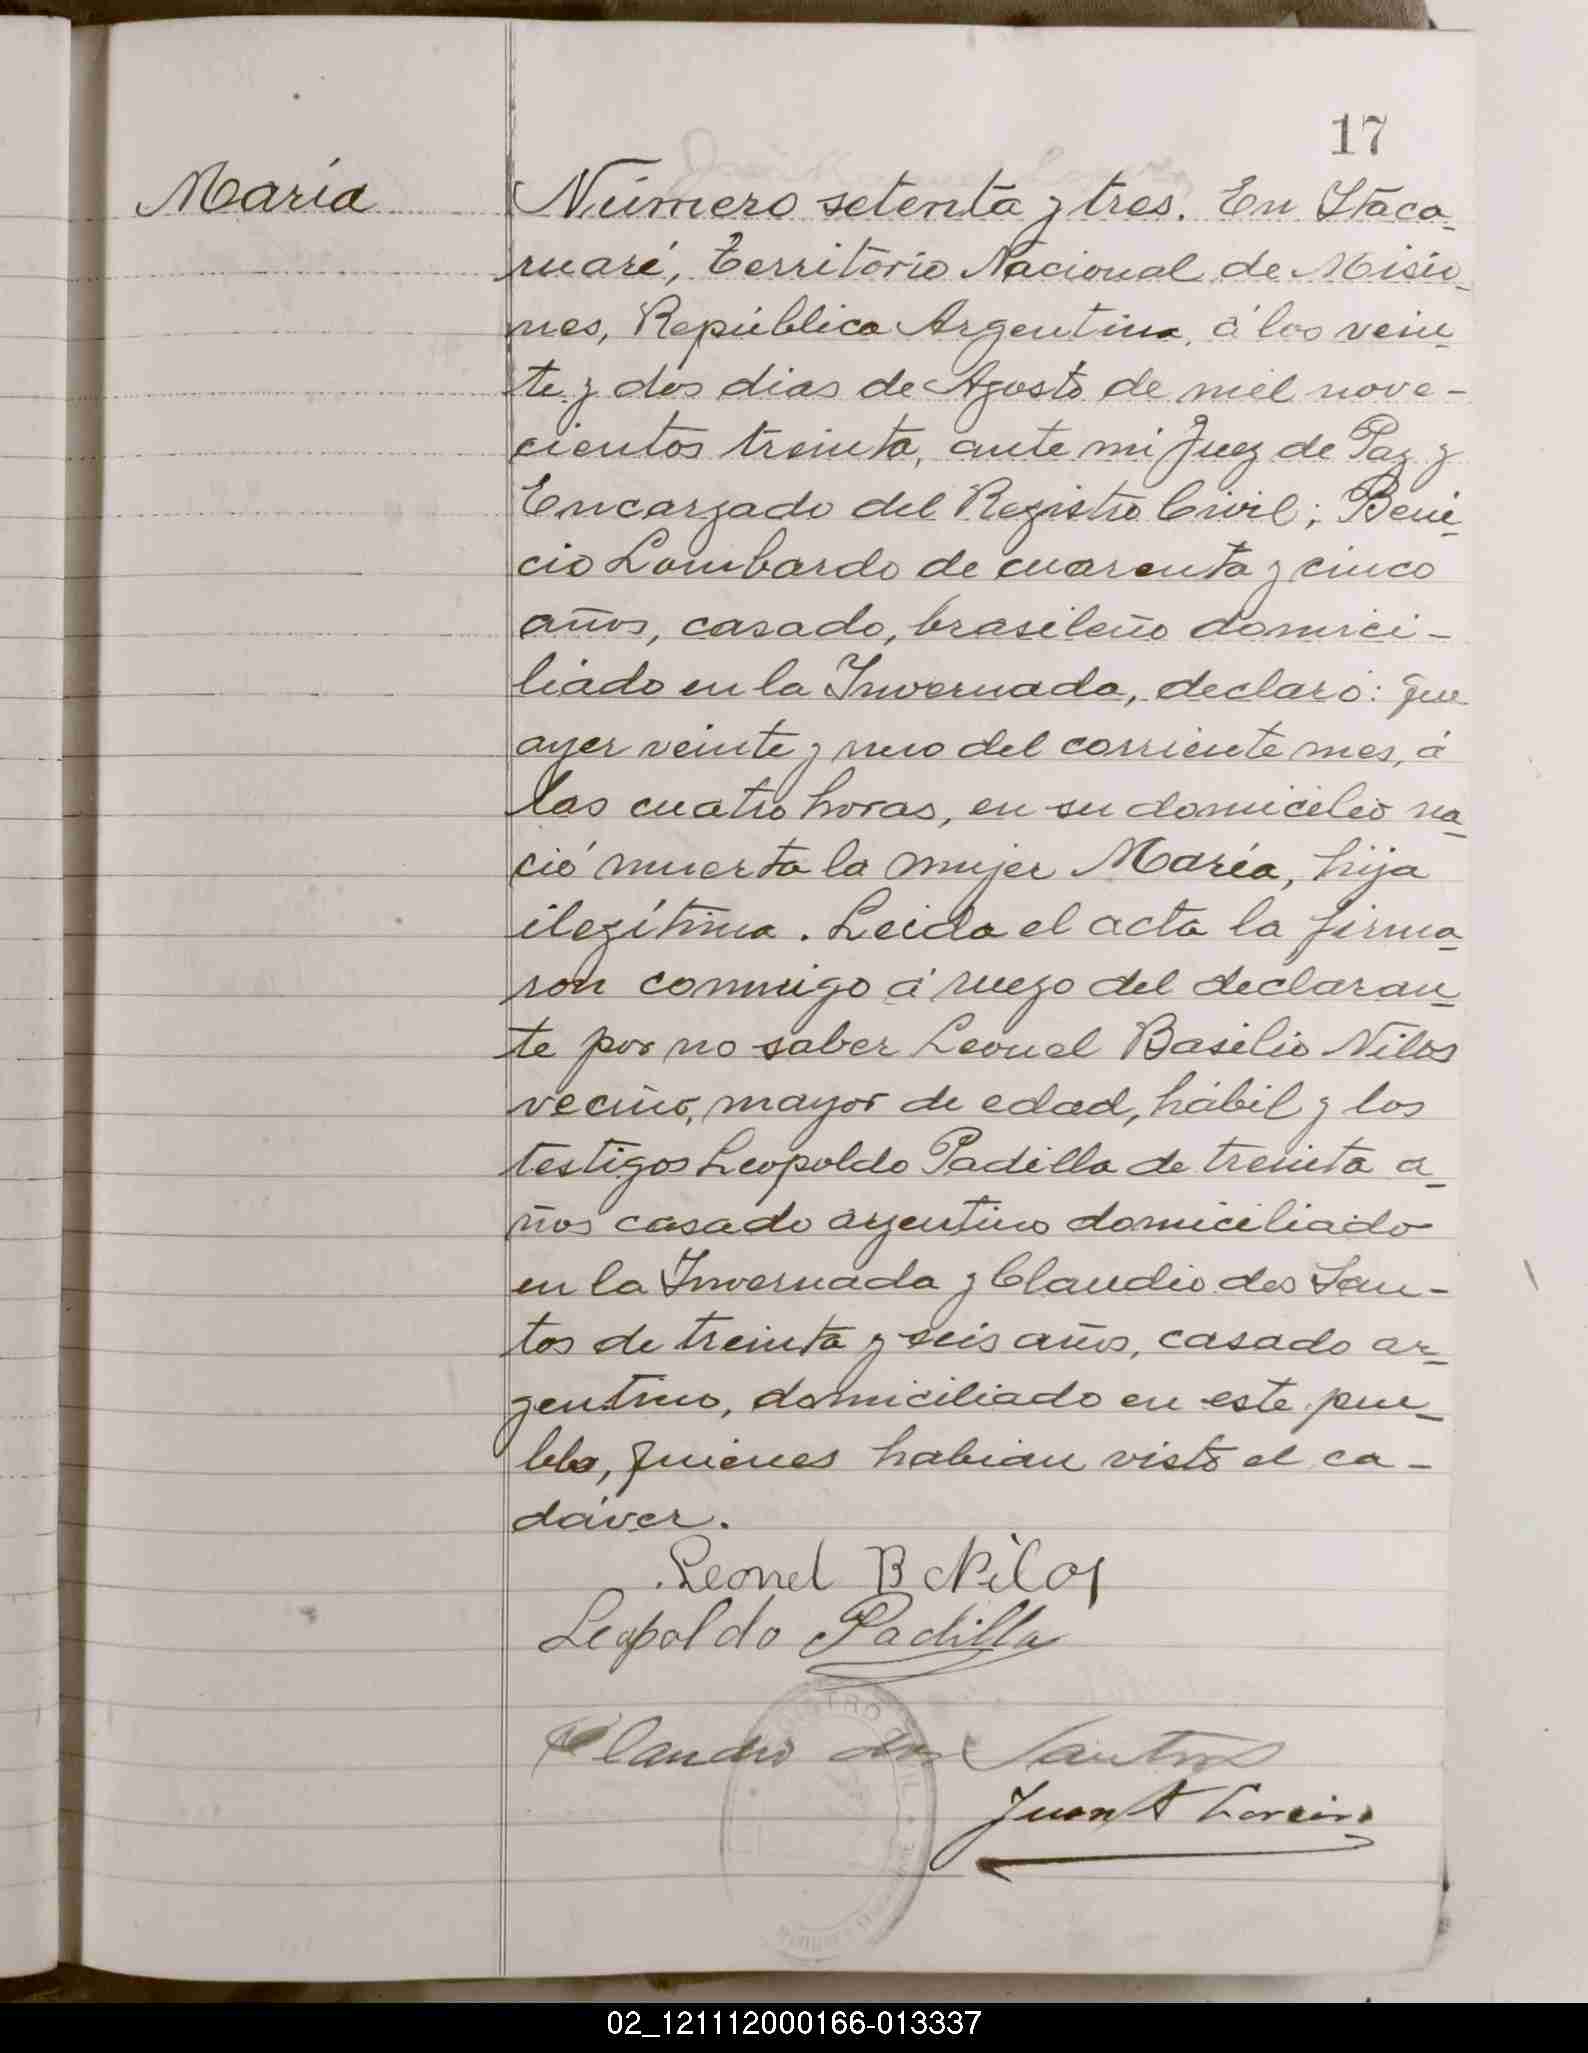 17
María
Número setenta y tres. En Itaca-
ruaré, territorio Nacional de Misio-
nes, República Argentina, á los vein-
te y dos dias de Agosto de mil nove-
cientos treinta, ante mi Juez de Paz y
Encargado del Registro Civil; Beni-
cio Lombardo de cuarenta y cinco
años, casado, brasileño domici-
liado en la Invernada, declaró: que
ayer veinte y uno del corriente mes, á
las cuatro horas, en su domicilio na-
ció muerta la mujer María, hija
ilegítima. Leida el acta la firma-
ron conmigo á ruego del declaran-
te por no saber Leonel Basilio Nilos
vecino, mayor de edad, hábil y los
testigos Leopoldo Padilla de treinta a-
ños casado argentino domiciliado
en la Invernada y Claudio dos San-
tos de treinta y seis años, casado ar-
gentino, domiciliado en este pue-
blo, quienes habian visto el ca-
dáver.
Leonel B Nilos
Leopoldo Padilla
Claudio dos Santos
Juan A
02_121112000166-013337